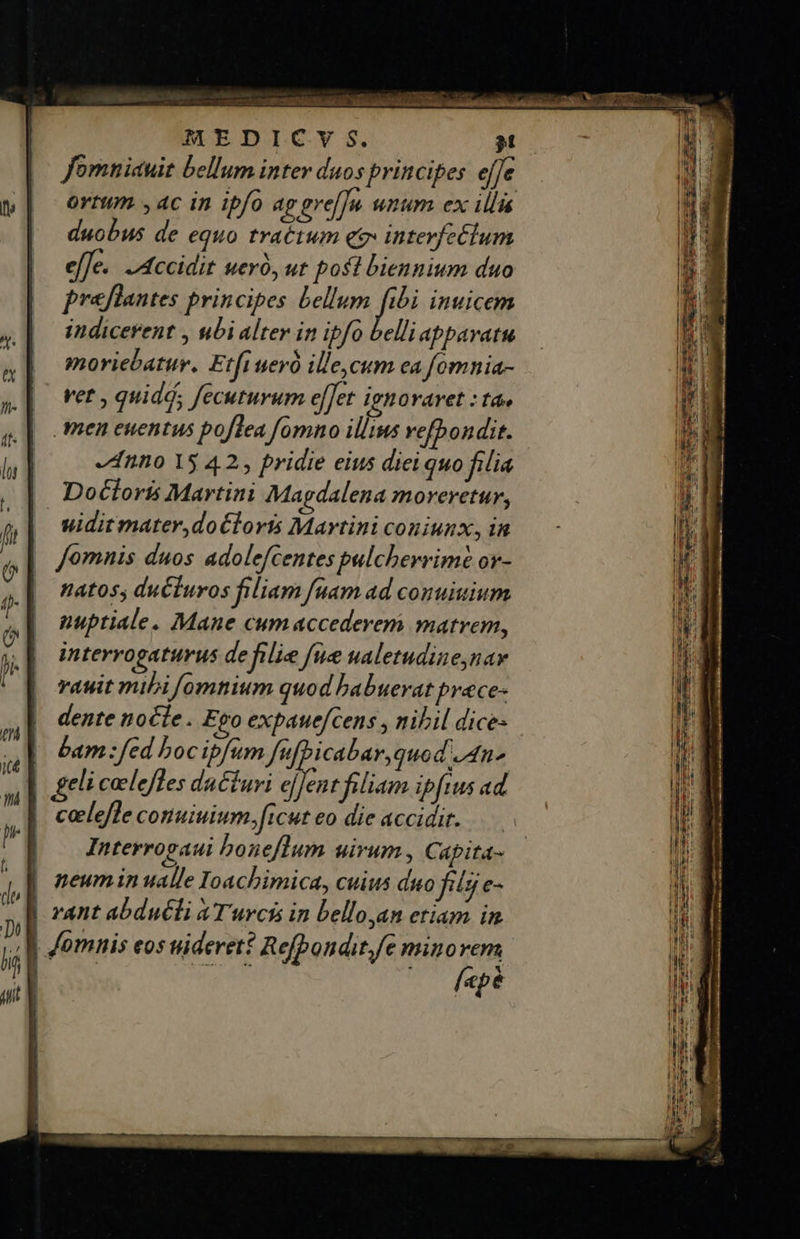 MEDICVS. 31
ſomniauit bellum inter duos principes eſſe
ortum, ac in ipſo aggreſſu unum ex illis
duobus de equo tractum & interfectum
eſſe. Accidit uerò, ut poſt biennium duo
præſtantes principes bellum ſibi inuicem
indicerent, ubi alter in ipſo belli apparatu
moriebatur. Etſi uerò ille, cum ea ſomnia-
ret, quidq; ſecuturum eſſet ignoraret: ta-
men euentus poſtea ſomno illius reſpondit.
Anno 1542, pridie eius diei quo filia
Doctoris Martini Magdalena moreretur,
uidit mater, doctoris Martini coniunx, in
ſomnis duos adoleſcentes pulcherrimè or-
natos, ducturos filiam ſuam ad conuiuium
nuptiale. Mane cum accederem matrem,
interrogaturus de filiæ ſuæ ualetudine, nar
rauit mihi ſomnium quod habuerat præce-
dente nocte. Ego expaueſcens, nihil dice-
bam: ſed hoc ipſum ſuſpicabar, quod An-
geli cœleſtes ducturi eſſent filiam ipſius ad
cœleſte conuiuium, ſicut eo die accidit.
Interrogaui honeſtum uirum, Capita-
neum in ualle Ioachimica, cuius duo filij e-
rant abducti à Turcis in bello, an etiam in
ſomnis eos uideret? Reſpondit, ſe minorem
ſæpè